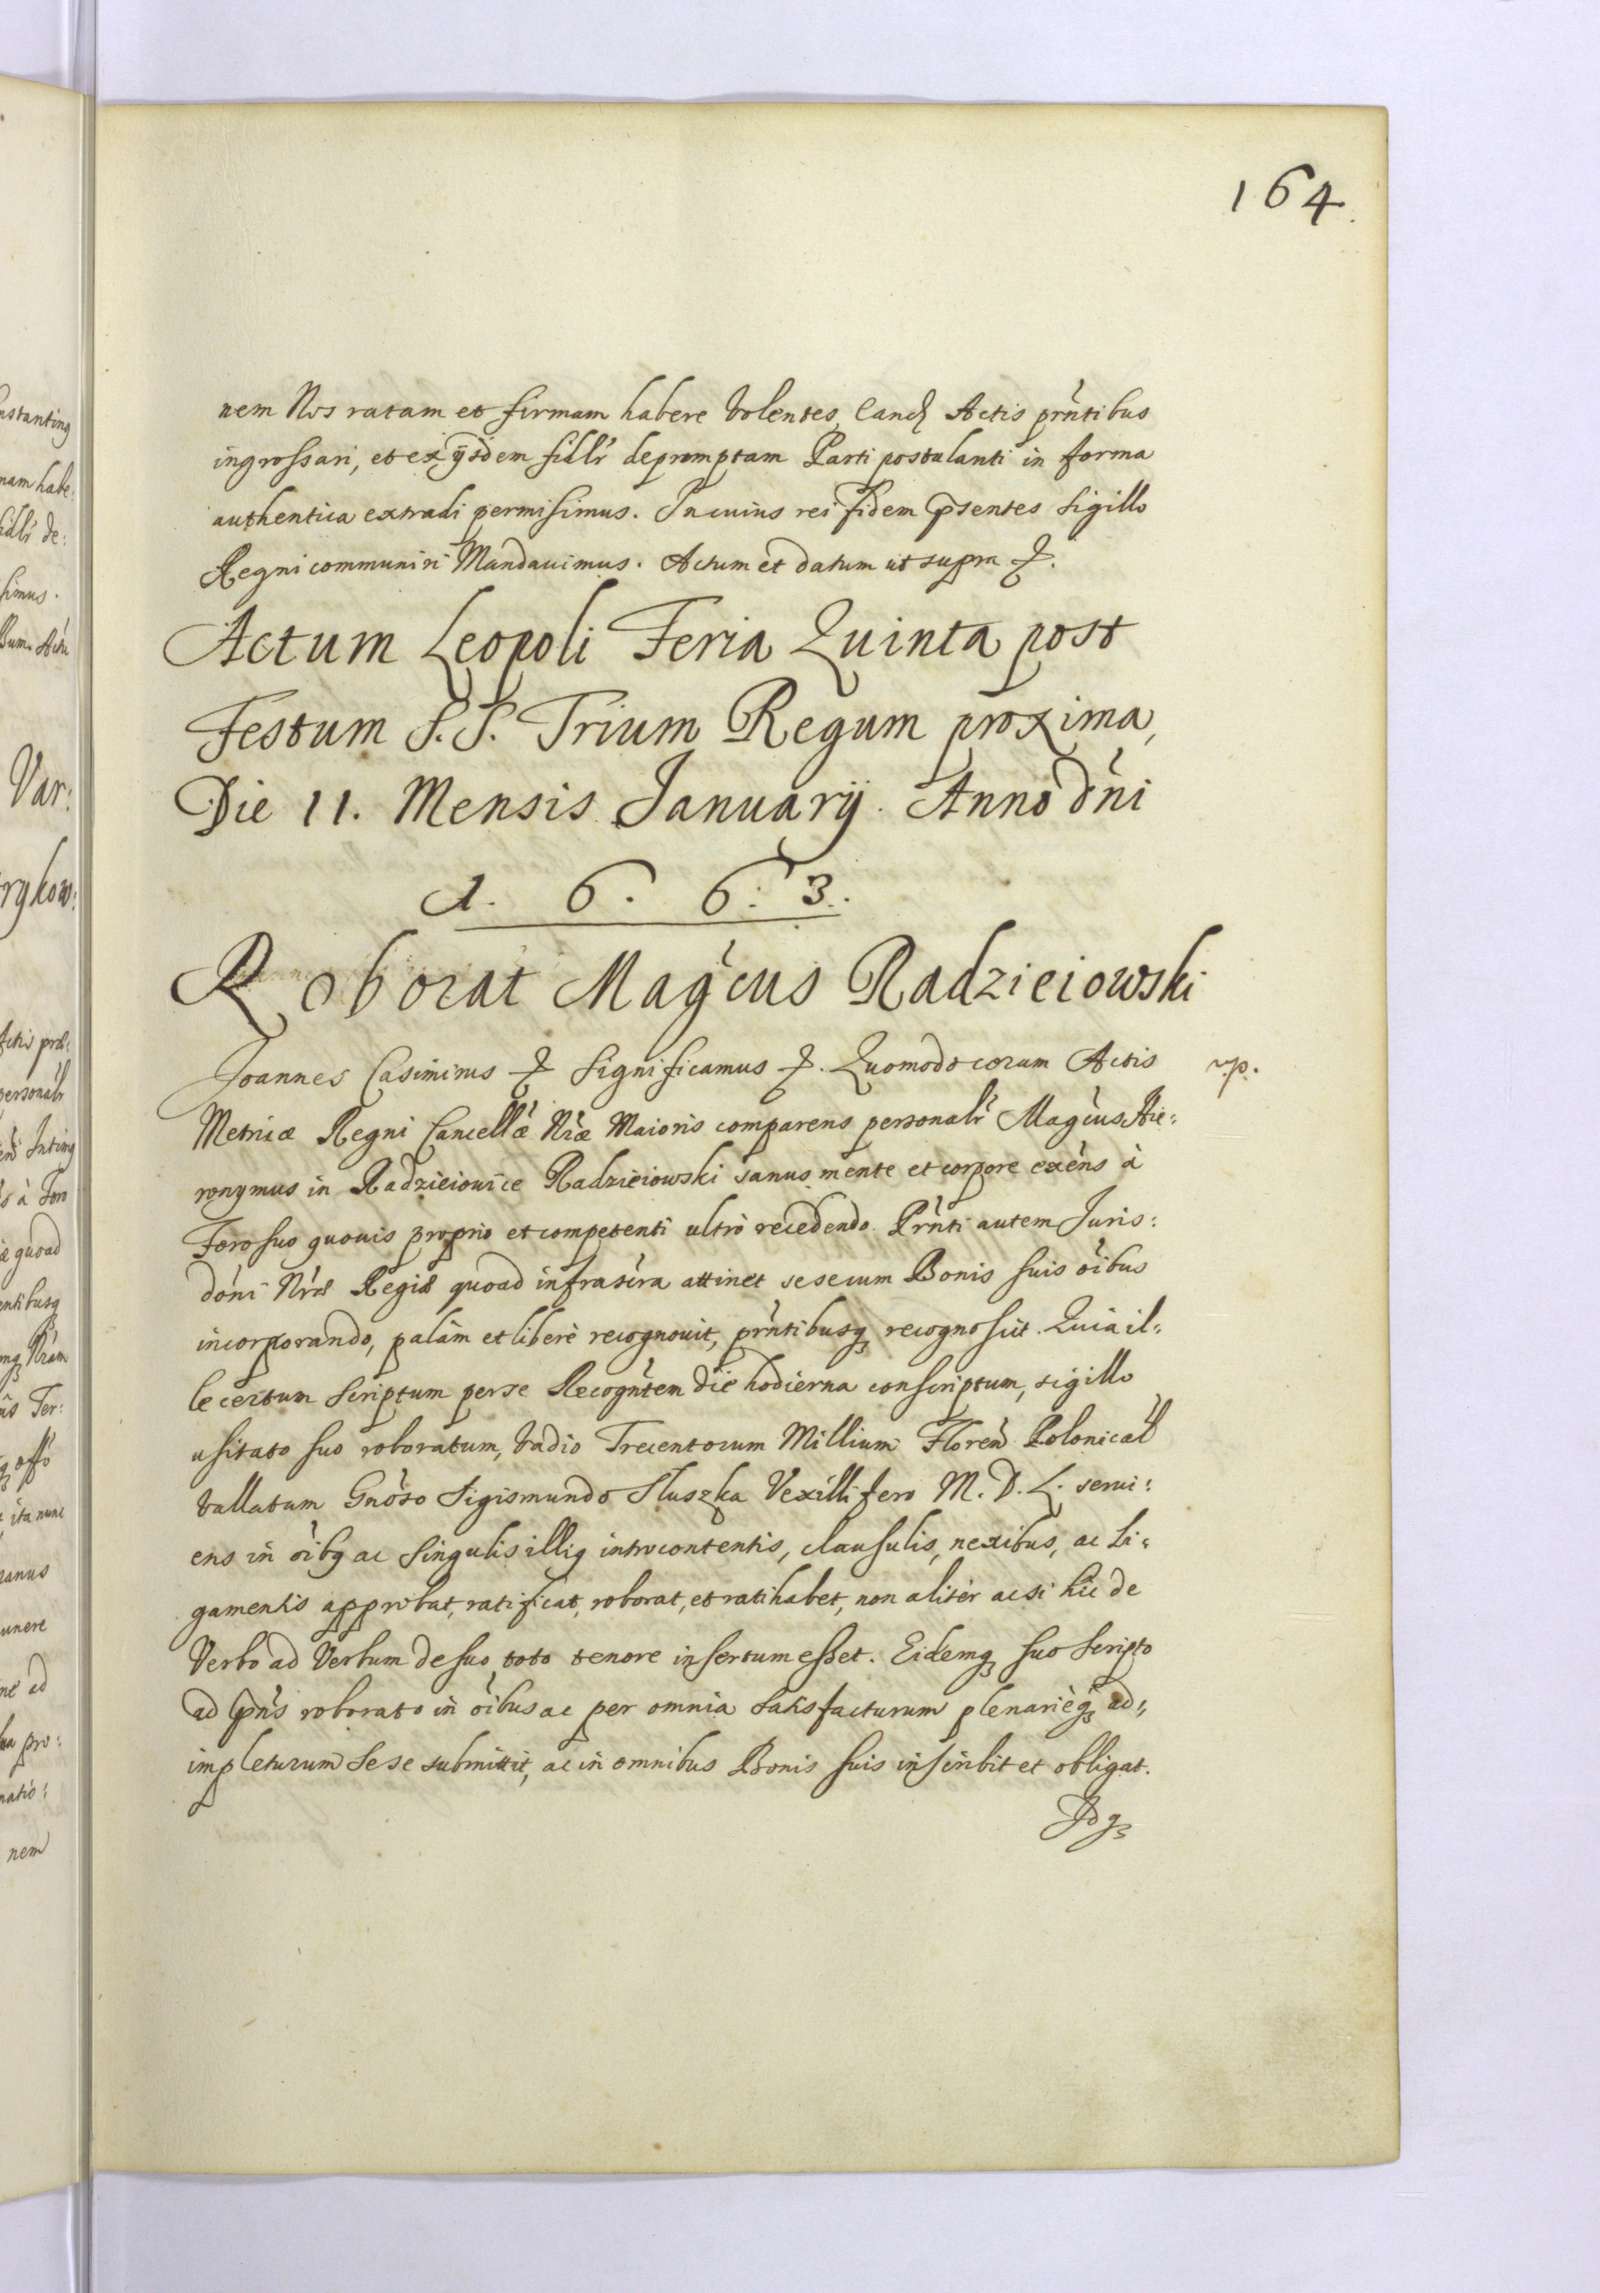 164
nem Nos ratam et firmam habere volentes, eand Actis prńtibus
ingrossari, et ex ijsdem fidlr depromptam Parti postulanti in forma
authentica extradi permisimus. In cuius rei fidem psentes sigillo
Regni communiri Mandauimus. Actum et datum ut supra
Actum Leopoli Feria Quinta post
Festum S.S. Trium Regum proxima,
Die 11. Mensis January. Anno dńi
1. 6. 6. 3.
Roborat Magcus Radzieiowski
Joannes Casimirus Significamus Quomodo coram Actis
rp.
Metricæ Regni Cancellæ Nræ Maioris comparens personalr Magcus Hie:
ronymus in Radzieiowice Radzieiowski sanus mente et corpore exens à
Foro suo quouis proprio et competenti ultrò recedendo. Prńti autem Juris:
dóni Nræ Regiæ quoad infrascra attinet sese cum Bonis suis oibus
incorporando, palàm et liberè recognouit, prńtibusq recognoscit. Quia il:
le certum scriptum per se Recogntem die hodierna conscriptum, sigillo
usitato suo roboratum, vadio Trecentorum Millium Floren Polonical
vallatum Gnoso Sigismundo Słuszka Vexillifero M. D. L. serui:
ens in oibq ac singulis illiq introcontentis, clausulis, nexibus, ac Li:
gamentis approbat, ratificat, roborat, et ratihabet, non aliter ac si hic de
Verbo ad Verbum de suo toto tenore insertum esset. Eidemq suo scripto
ad pńs roborato in oibus ac per omnia satisfacturum plenarièq ad:
impleturum sese submittit, ac in omnibus Bonis suis inscribit et obligat.
Idq